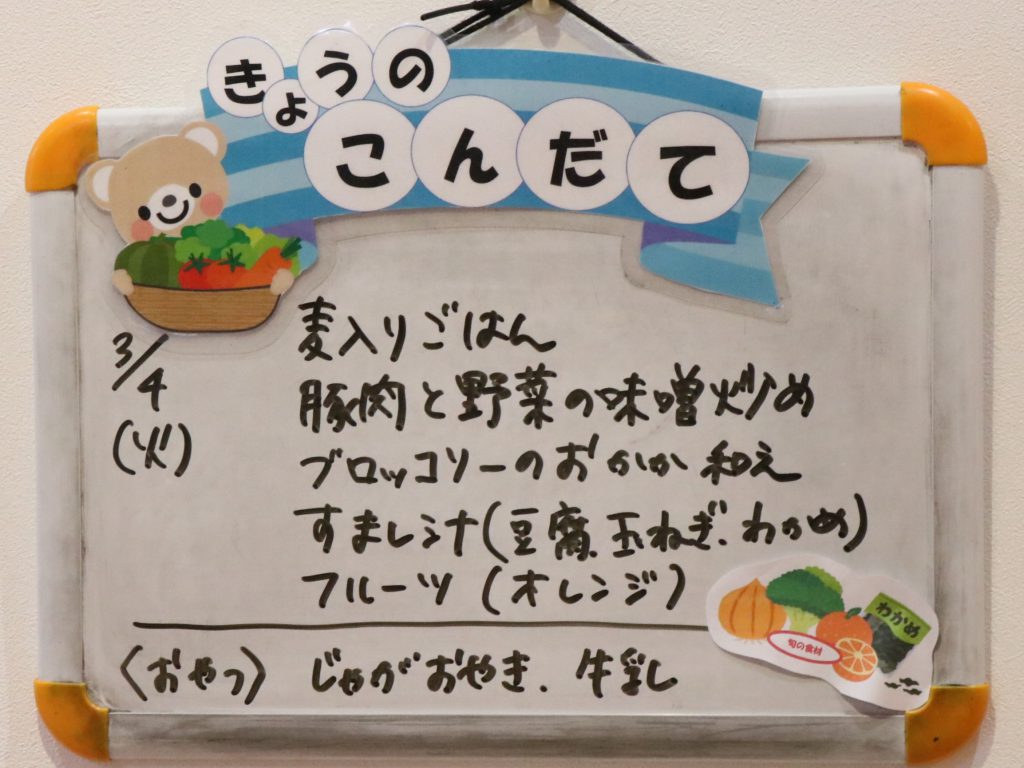 きょうの
こんだて
3/4
(火)
麦入りごはん
豚肉と野菜の味噌炒め
ブロッコリーのおかか和え
すまし汁(豆腐、玉ねぎ、わかめ)
フルーツ(オレンジ)
わかめ
旬の食材
〈おやつ〉 じゃがおやき、牛乳